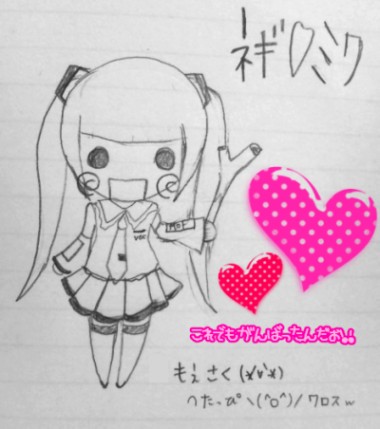 ネギ♡ミク
MOE
VOC
これでもがんばったんだお!!
もぇ さく (*'v'*)
へたっぴ ヽ(^o^)/ ワロスw